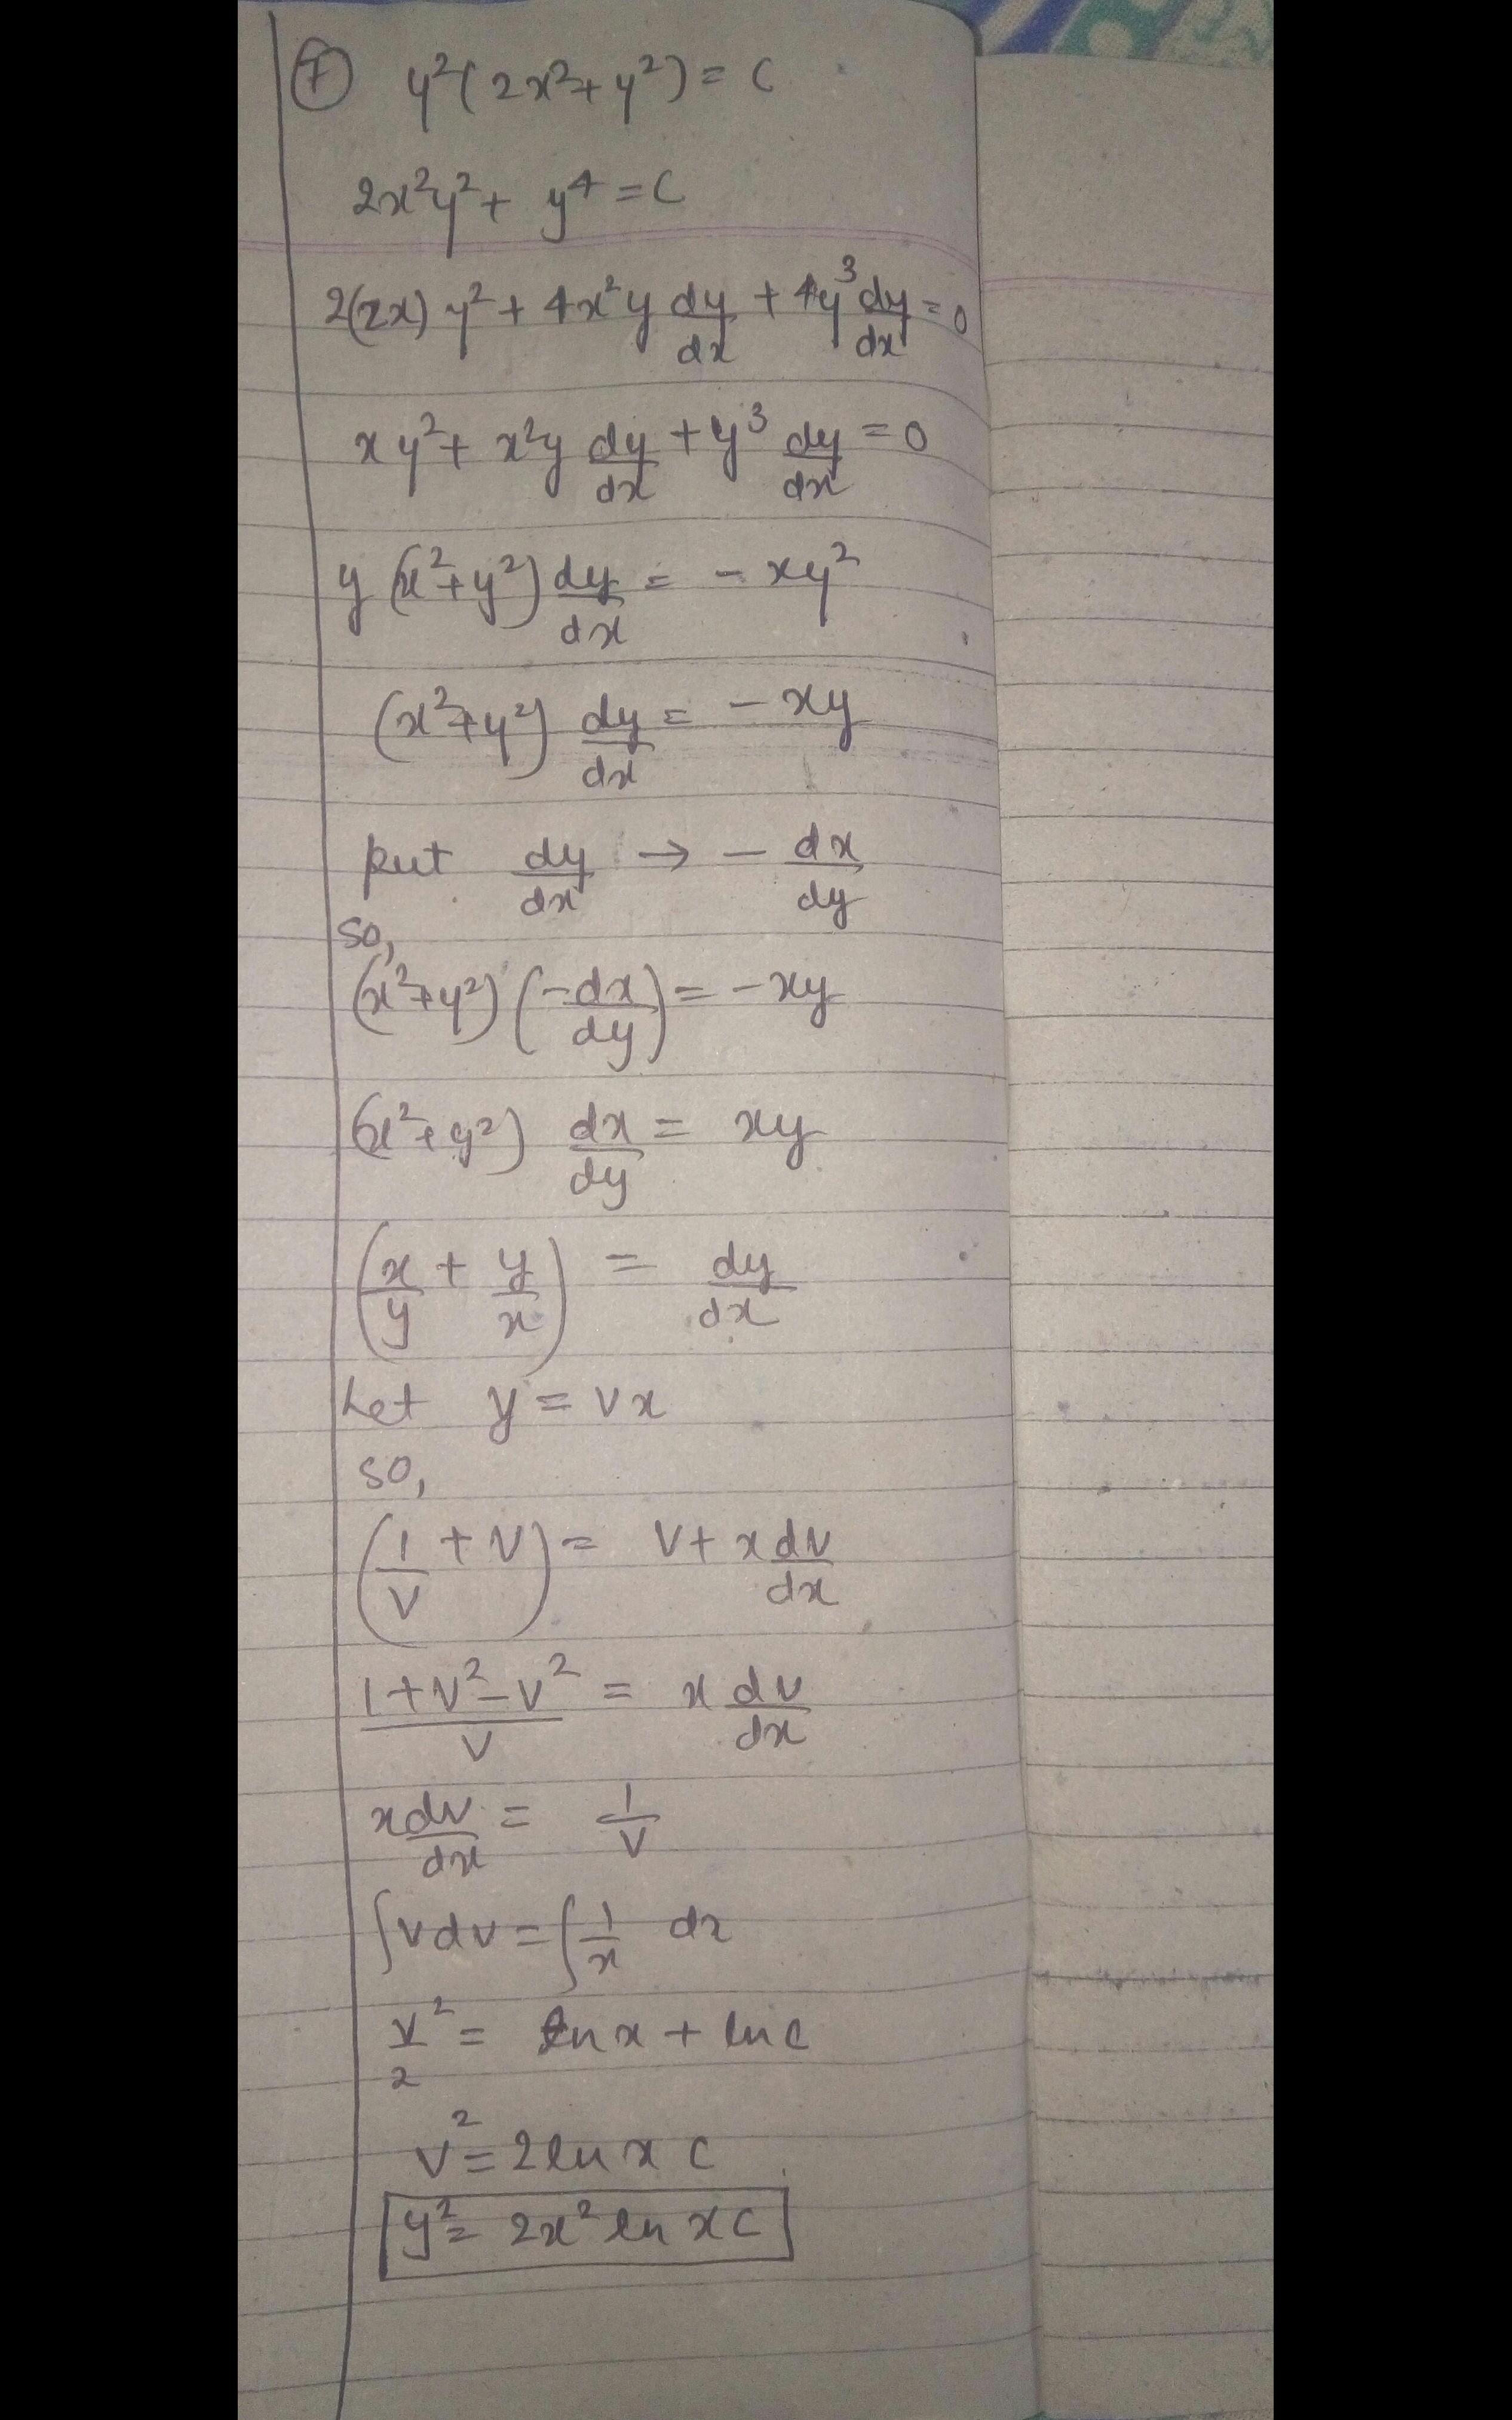 ⑦ y²(2x²+y²) = C
2x²y² + y⁴ = C
2(2x) y² + 4x²y dy/dx + 4y³ dy/dx = 0
x y² + x²y dy/dx + y³ dy/dx = 0
y (x²+y²) dy/dx = - xy²
(x²+y²) dy/dx = - xy
put dy/dx → - dx/dy
so,
(x²+y²) (-dx/dy) = - xy
(x²+y²) dx/dy = xy
(x/y + y/x) = dy/dx
Let y = vx
so,
(1/v + v) = v + x dv/dx
(1+v²-v²)/v = x dv/dx
x dv/dx = 1/v
∫v dv = ∫1/x dx
v²/2 = ln x + ln c
v² = 2 ln x c
y² = 2x² ln x c